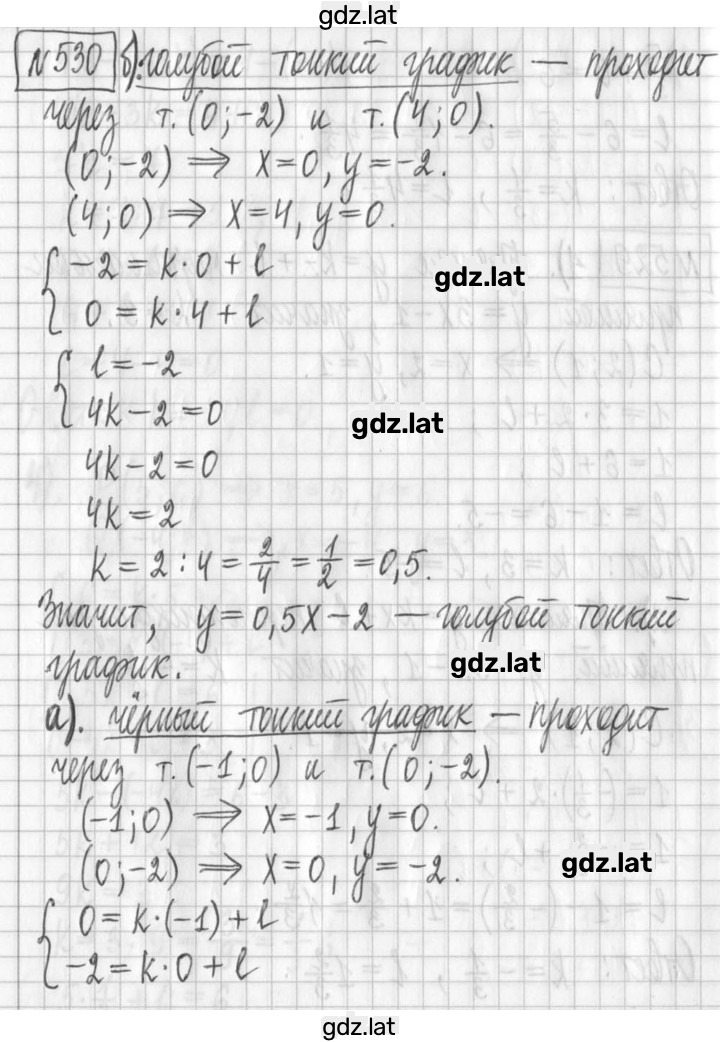 gdz.lat
№530 б). голубой тонкий график — проходит
через т. (0; -2) и т. (4; 0).
(0; -2) ⇒ x = 0, y = -2.
(4; 0) ⇒ x = 4, y = 0.
{ -2 = k · 0 + l
gdz.lat
0 = k · 4 + l
{ l = -2
4k - 2 = 0
gdz.lat
4k - 2 = 0
4k = 2
k = 2 : 4 = 2/4 = 1/2 = 0,5.
Значит, y = 0,5x - 2 — голубой тонкий
график.
gdz.lat
а). чёрный тонкий график — проходит
через т. (-1; 0) и т. (0; -2).
(-1; 0) ⇒ x = -1, y = 0.
(0; -2) ⇒ x = 0, y = -2.
gdz.lat
{ 0 = k · (-1) + l
-2 = k · 0 + l
gdz.lat